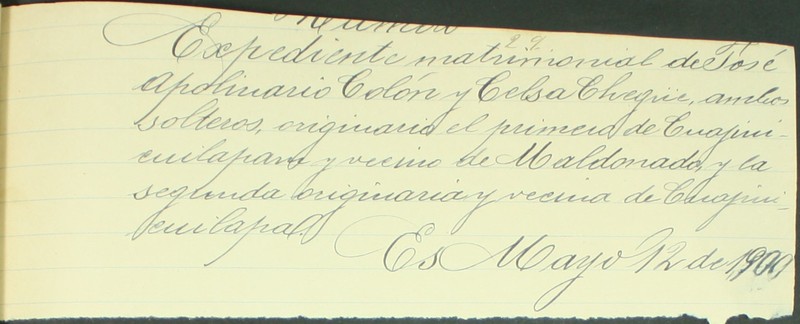 Número
29
Expediente matrimonial de José
Apolinario Colón y Celsa Chegüe, ambos
solteros, originario el primero de Cuajini-
cuilapam y vecino de Maldonado, y la
segunda originaria y vecina de Cuajini-
cuilapa.
Es Mayo 12 de